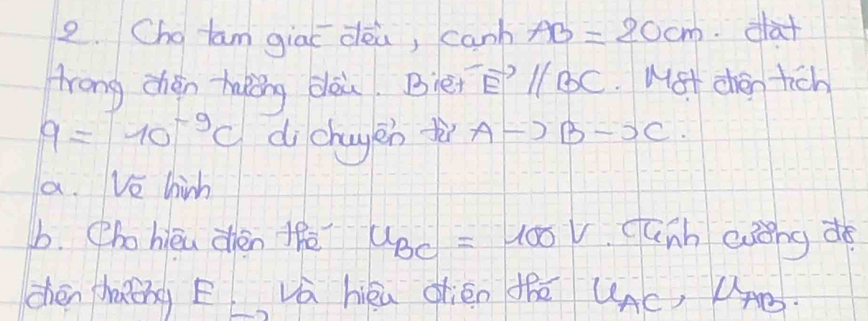 2. Cho tam giác đều, cạnh AB = 20cm. đặt
trong điện trường đều. Biết E→ // BC. Một điện tích
q = 10⁻⁹C di chuyển từ A -> B -> C.
a. Vẽ hình
b. Cho hiệu điện thế U_BC = 100 V. Tính cường độ
điện trường E và hiệu điện thế U_AC, U_AB.